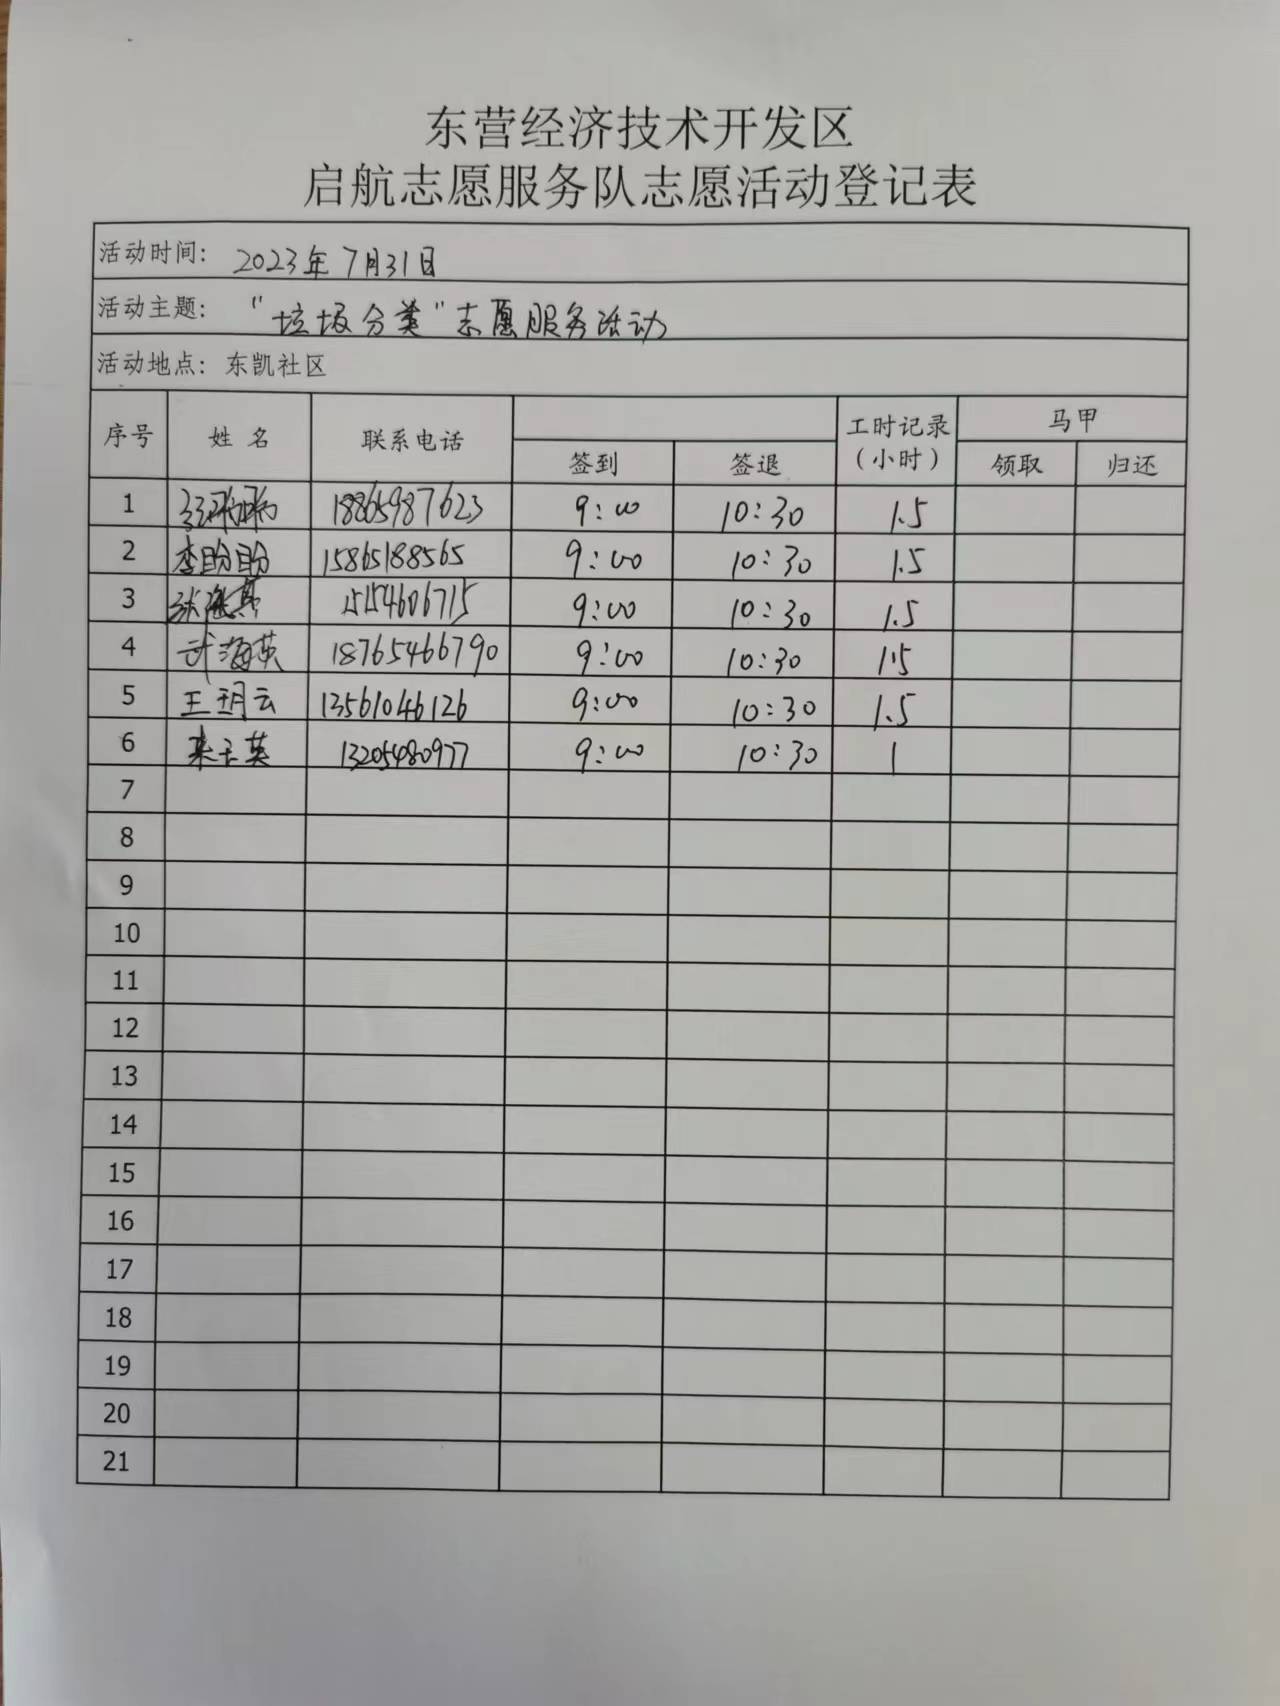 东营经济技术开发区
启航志愿服务队志愿活动登记表
活动时间：2023年7月31日
活动主题："垃圾分类"志愿服务活动
活动地点：东凯社区
序号 姓 名 联系电话 签到 签退 工时记录（小时） 马甲 领取 归还
1 18865987623 9:00 10:30 1.5
2 李盼盼 15865188565 9:00 10:30 1.5
3 15154606715 9:00 10:30 1.5
4 武海英 18765466790 9:00 10:30 1.5
5 王玥云 13561046126 9:00 10:30 1.5
6 13205480977 9:00 10:30 1
7
8
9
10
11
12
13
14
15
16
17
18
19
20
21